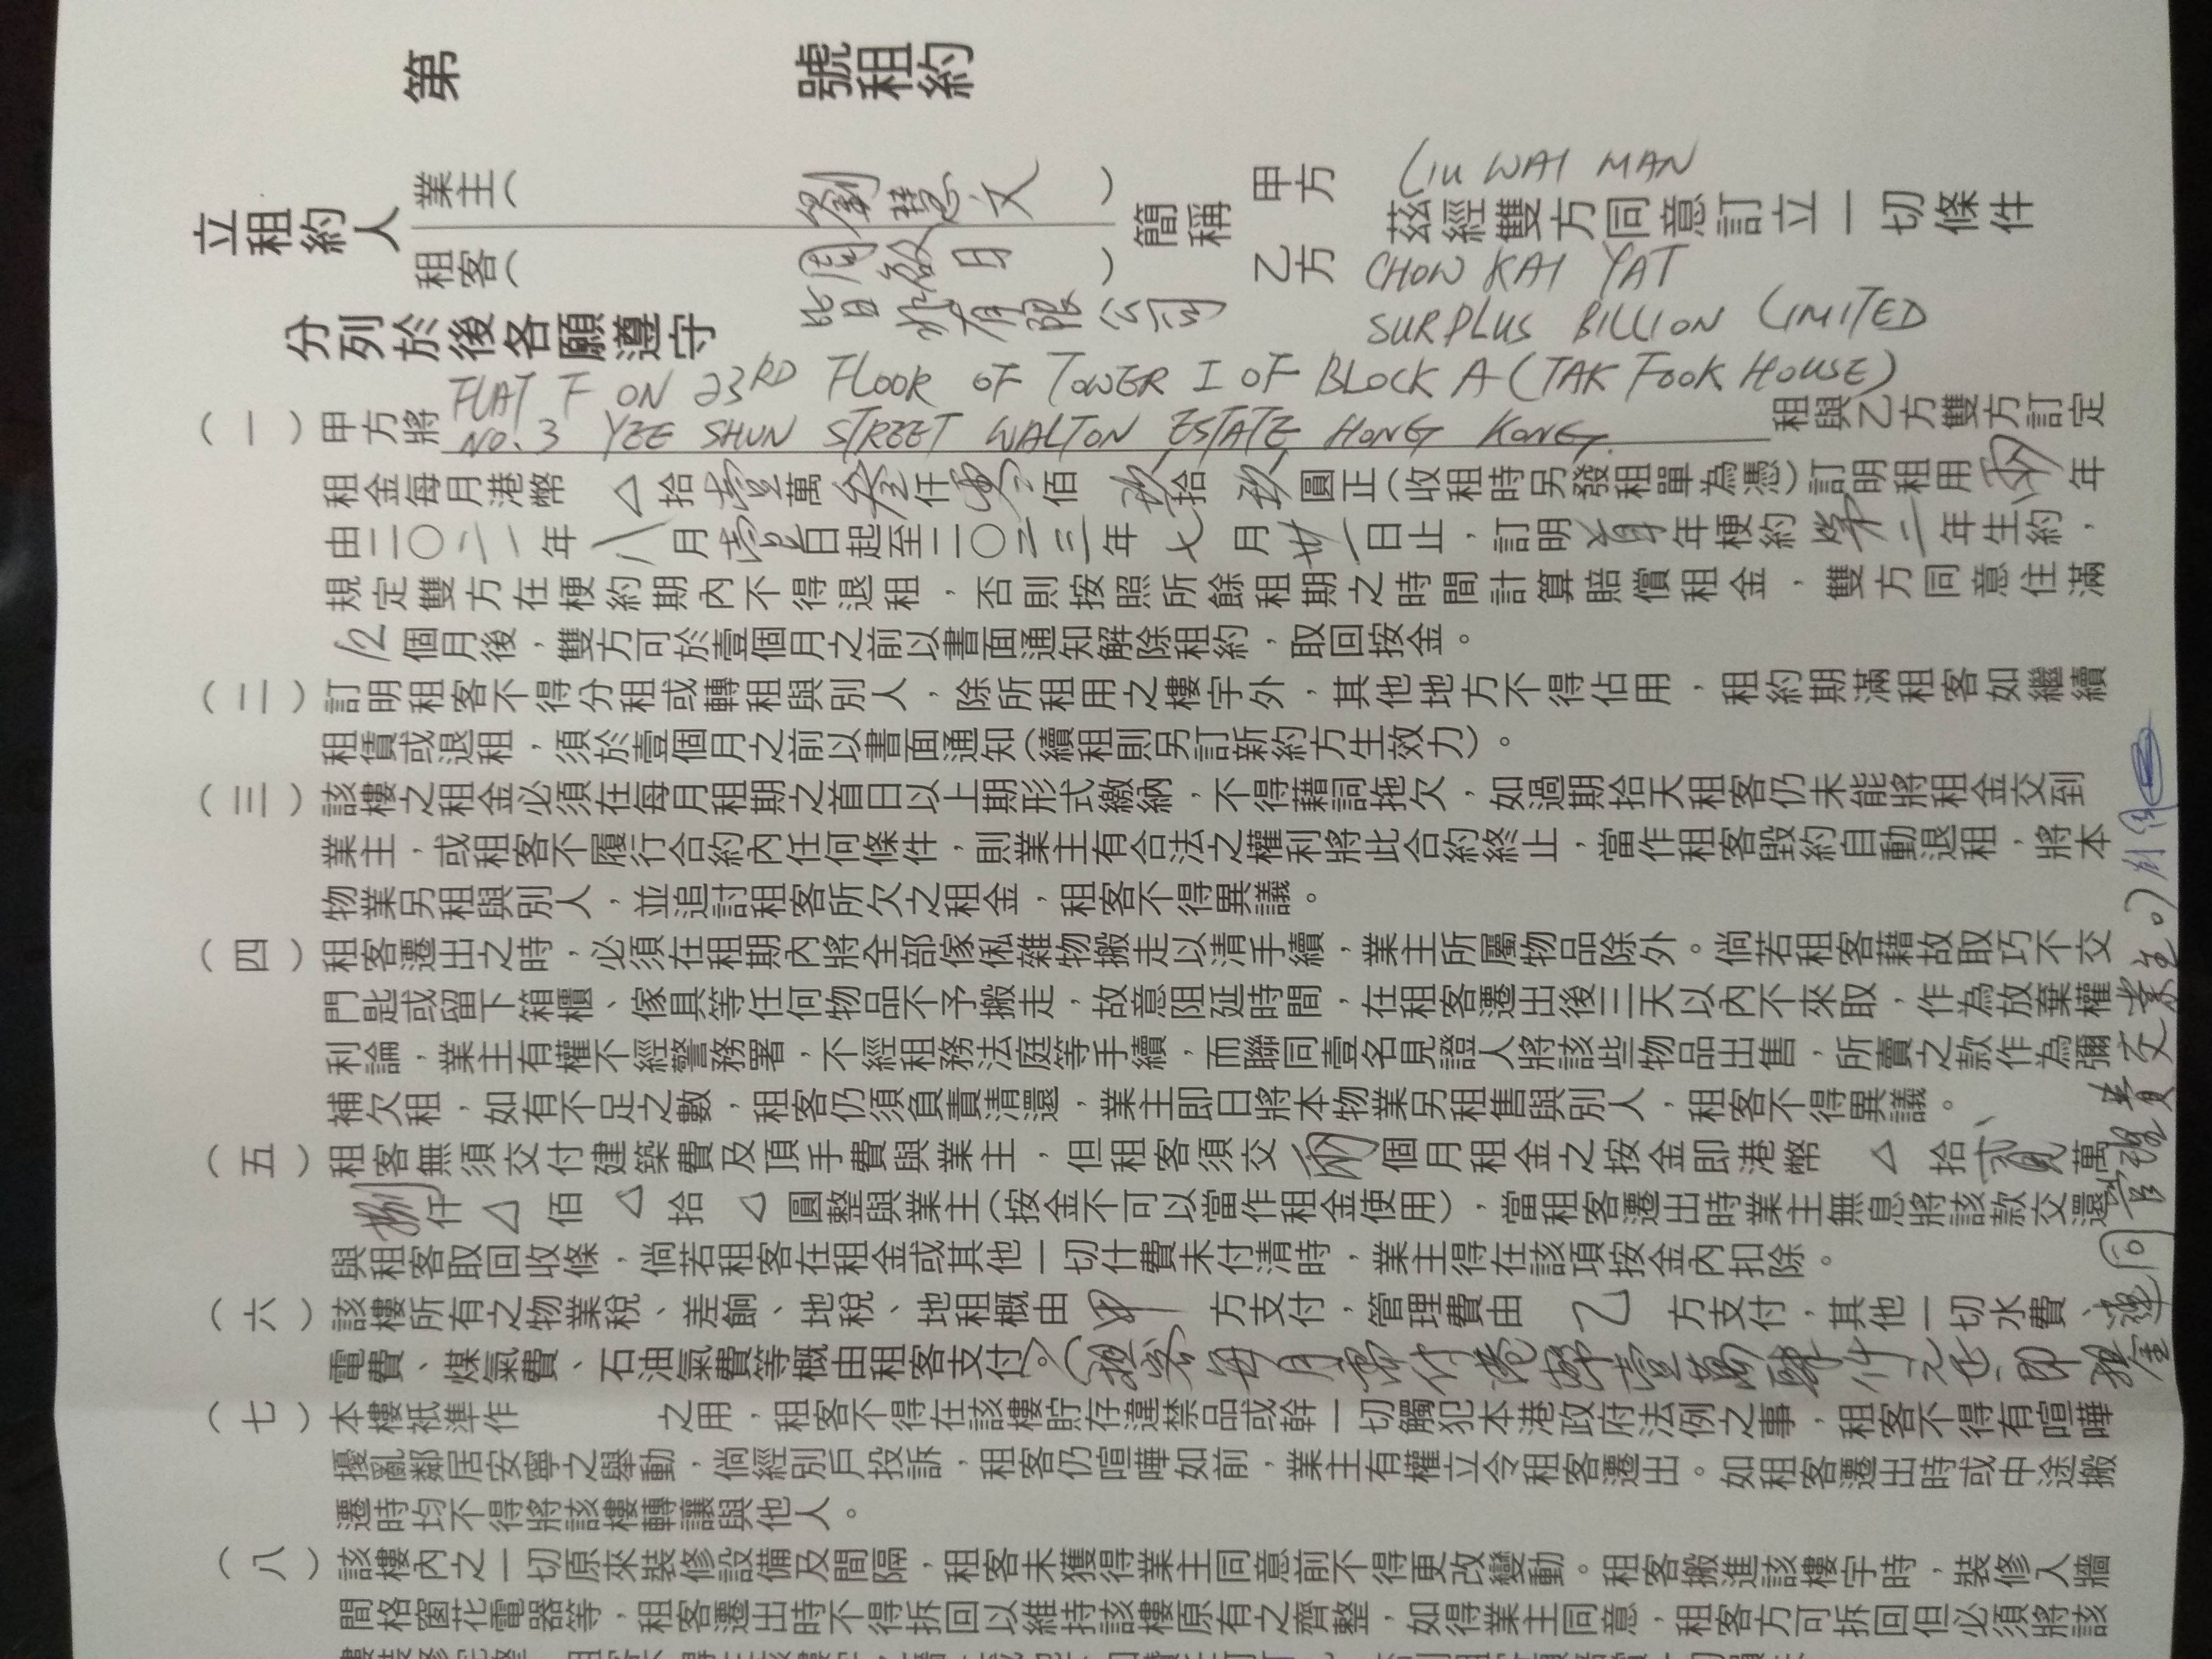 第 號租約
立租約人 業主( 劉慧文 ) 簡稱 甲方 LIU WAI MAN
租客( 周啟日 ) 乙方 CHOW KAI YAT
茲經雙方同意訂立一切條件
有限公司 SURPLUS BILLION LIMITED
分列於後各願遵守
FLAT F ON 23RD FLOOR OF TOWER I OF BLOCK A (TAK FOOK HOUSE)
(一)甲方將 NO. 3 YEE SHUN STREET WALTON ESTATE, HONG KONG. 租與乙方雙方訂定
租金每月港幣 △ 拾 壹 萬 叁 仟 佰 玖 拾 玖 圓正(收租時另發租單為憑)訂明租用 兩 年
由二〇二一年 八 月 壹 日起至二〇二三年 七 月 卅一 日止,訂明 首 年梗約 第二 年生約,
規定雙方在梗約期內不得退租,否則按照所餘租期之時間計算賠償租金,雙方同意住滿
12 個月後,雙方可於壹個月之前以書面通知解除租約,取回按金。
(二)訂明租客不得分租或轉租與別人,除所租用之樓宇外,其他地方不得佔用,租約期滿租客如繼續
租賃或退租,須於壹個月之前以書面通知(續租則另訂新約方生效力)。
(三)該樓之租金必須在每月租期之首日以上期形式繳納,不得藉詞拖欠,如過期拾天租客仍未能將租金交到
業主,或租客不履行合約內任何條件,則業主有合法之權利將此合約終止,當作租客毀約自動退租,將本
物業另租與別人,並追討租客所欠之租金,租客不得異議。
(四)租客遷出之時,必須在租期內將全部傢俬雜物搬走以清手續,業主所屬物品除外。倘若租客藉故取巧不交
門匙或留下箱櫃、傢具等任何物品不予搬走,故意阻延時間,在租客遷出後三天以內不來取,作為放棄權
利論,業主有權不經警務署,不經租務法庭等手續,而聯同壹名見證人將該些物品出售,所賣之款作為彌
補欠租,如有不足之數,租客仍須負責清還,業主即日將本物業另租售與別人,租客不得異議。
(五)租客無須交付建築費及頂手費與業主,但租客須交 兩 個月租金之按金即港幣 △ 拾 貳 萬
捌 仟 △ 佰 △ 拾 △ 圓整與業主(按金不可以當作租金使用),當租客遷出時業主無息將該款交還
與租客取回收條,倘若租客在租金或其他一切什費未付清時,業主得在該項按金內扣除。
(六)該樓所有之物業稅、差餉、地稅、地租概由 甲 方支付,管理費由 乙 方支付,其他一切水費、
電費、煤氣費、石油氣費等概由租客支付。(租客每月需付港幣壹萬肆仟元正,即租金
連同管理費交業主。)
(七)本樓祇準作 之用,租客不得在該樓貯存違禁品或幹一切觸犯本港政府法例之事,租客不得有喧嘩
擾亂鄰居安寧之舉動,倘經別戶投訴,租客仍喧嘩如前,業主有權立令租客遷出。如租客遷出時或中途搬
遷時均不得將該樓轉讓與他人。
(八)該樓內之一切原來裝修設備及間隔,租客未獲得業主同意前不得更改變動。租客搬進該樓宇時,裝修入牆
間格窗花電器等,租客遷出時不得拆回以維持該樓原有之齊整,如得業主同意,租客方可拆回但必須將該